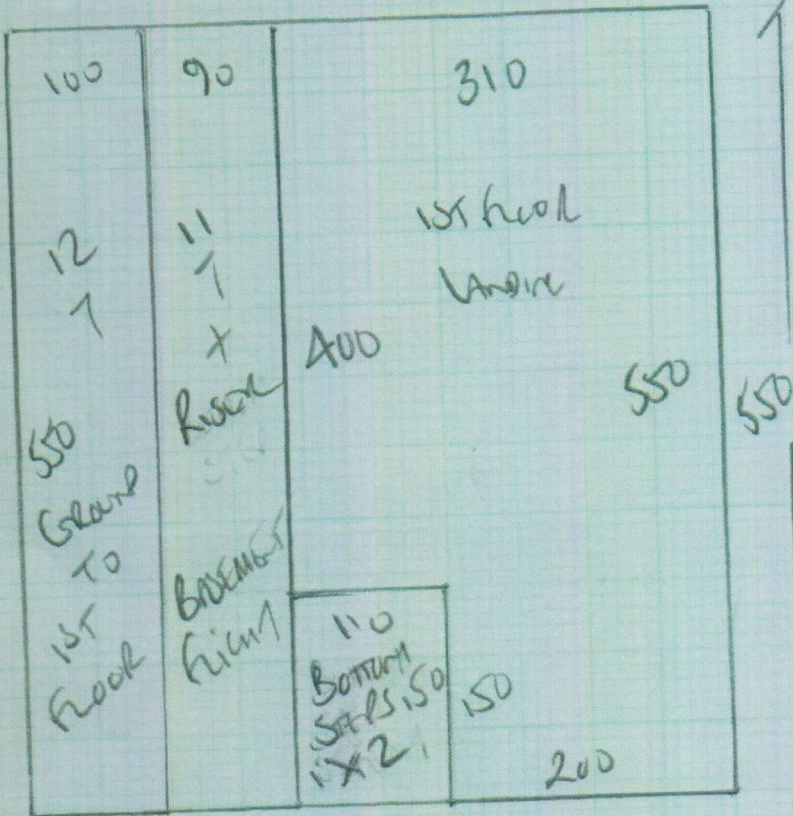 100
12
T
550
GROUND
TO
1ST
FLOOR
90
11
T
X
RISER
BASEMENT
FLIGHT
310
1ST FLOOR
LANDING
400
550
550
110
BOTTOM
STEPS 150
X2
150
200